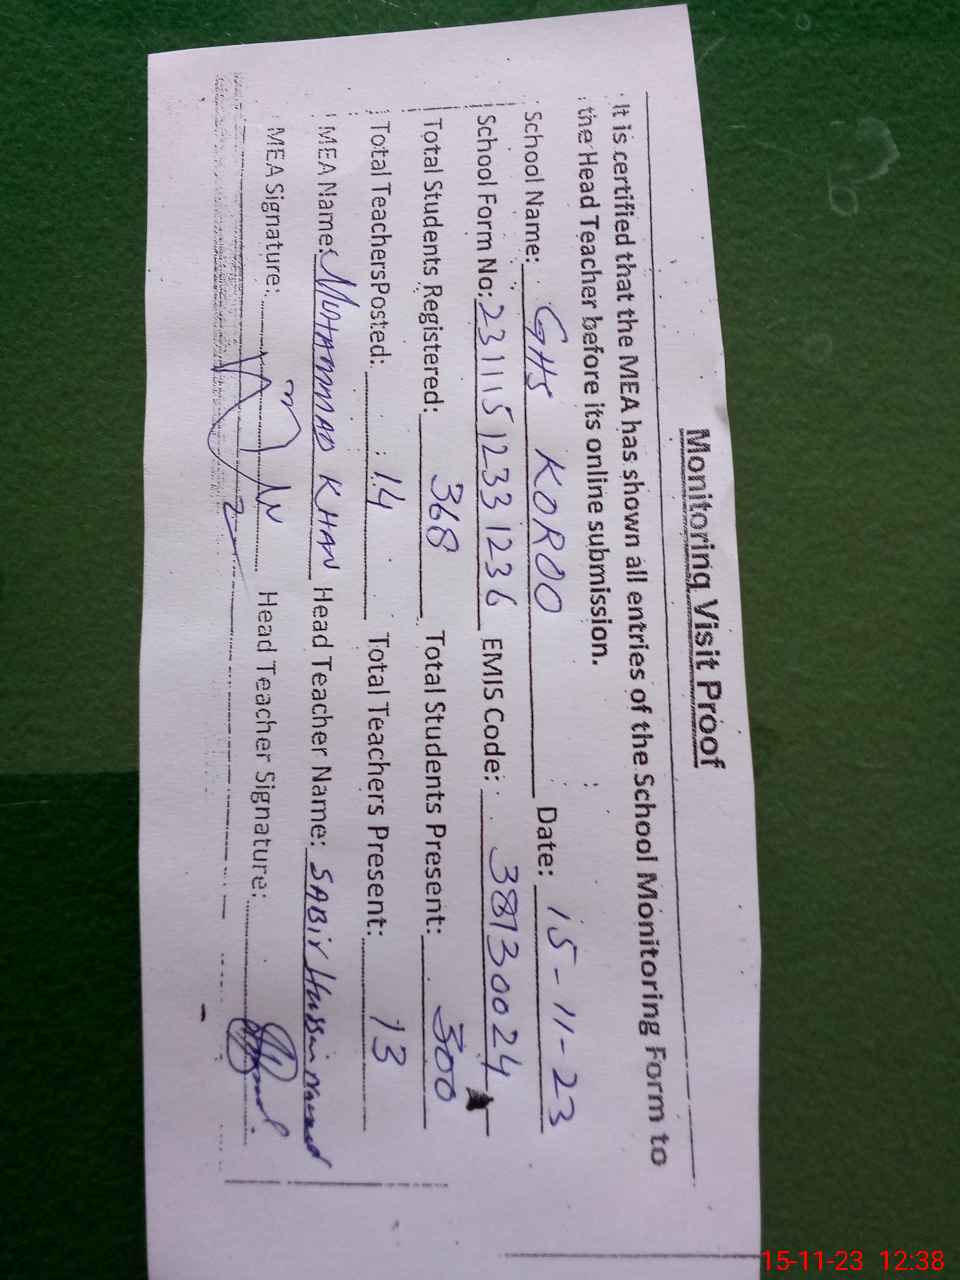 Monitoring Visit Proof
It is certified that the MEA has shown all entries of the School Monitoring Form to
the Head Teacher before its online submission.
School Name: GHS KOROO Date: 15-11-23
School Form No: 231115 1233 1236 EMIS Code: 38130024
Total Students Registered: 368 Total Students Present: 300
Total TeachersPosted: 14 Total Teachers Present: 13
MEA Name: MUHAMMAD KHAN Head Teacher Name: SABIR Hussain
MEA Signature: Head Teacher Signature:
15-11-23 12:38